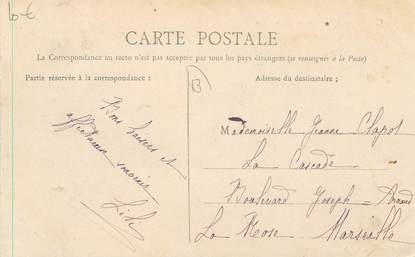 10.€
CARTE POSTALE
La Correspondance au recto n'est pas acceptée par tous les pays étrangers (se renseigner à la Poste)
Partie réservée à la correspondance :
Adresse du destinataire ;
B
Bons baisers et
affectueux
Lili
Mademoiselle Jeanne Clapot
La Cascade
Boulevard Joseph =
La Rose Marseille